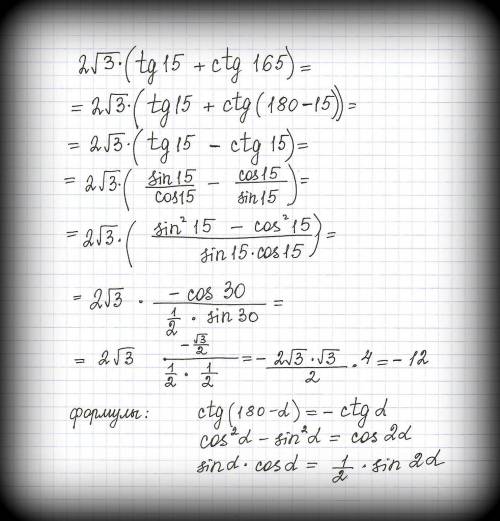 2√3·(tg 15 + ctg 165) =
= 2√3·(tg 15 + ctg(180-15)) =
= 2√3·(tg 15 - ctg 15) =
= 2√3·(sin 15/cos 15 - cos 15/sin 15) =
= 2√3·((sin² 15 - cos² 15)/(sin 15·cos 15)) =
= 2√3 · (- cos 30)/(1/2 · sin 30) =
= 2√3 · (-√3/2)/(1/2 · 1/2) = - (2√3·√3)/2 · 4 = - 12
формулы: ctg(180-α) = - ctg α
cos²α - sin²α = cos 2α
sin α · cos α = 1/2 · sin 2α